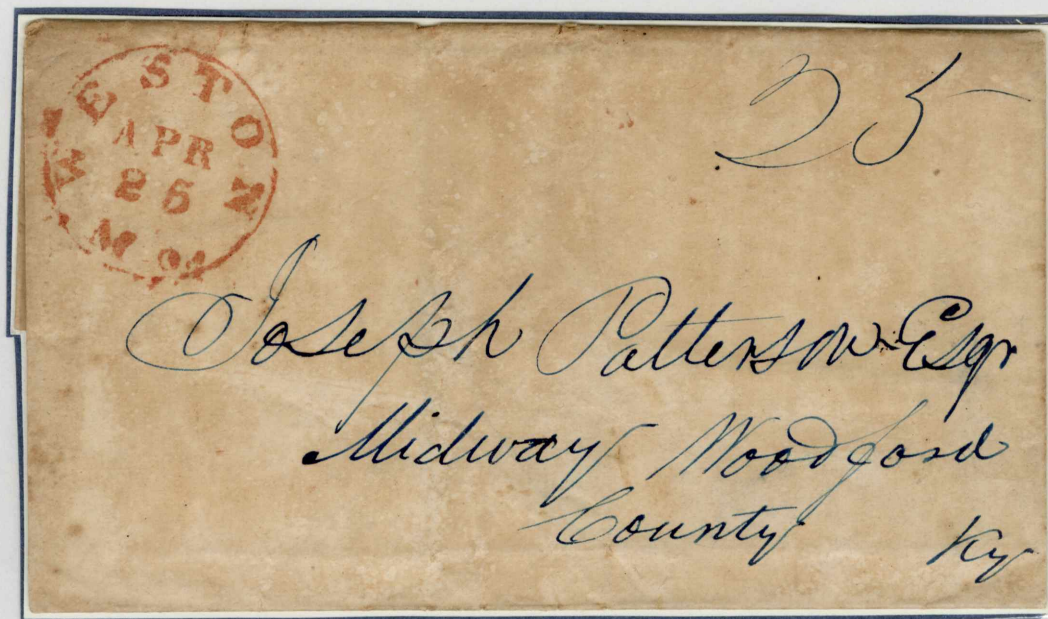 WESTON
APR
25
Mo.
25
Joseph Patterson Esqr
Midway Woodford
County Ky